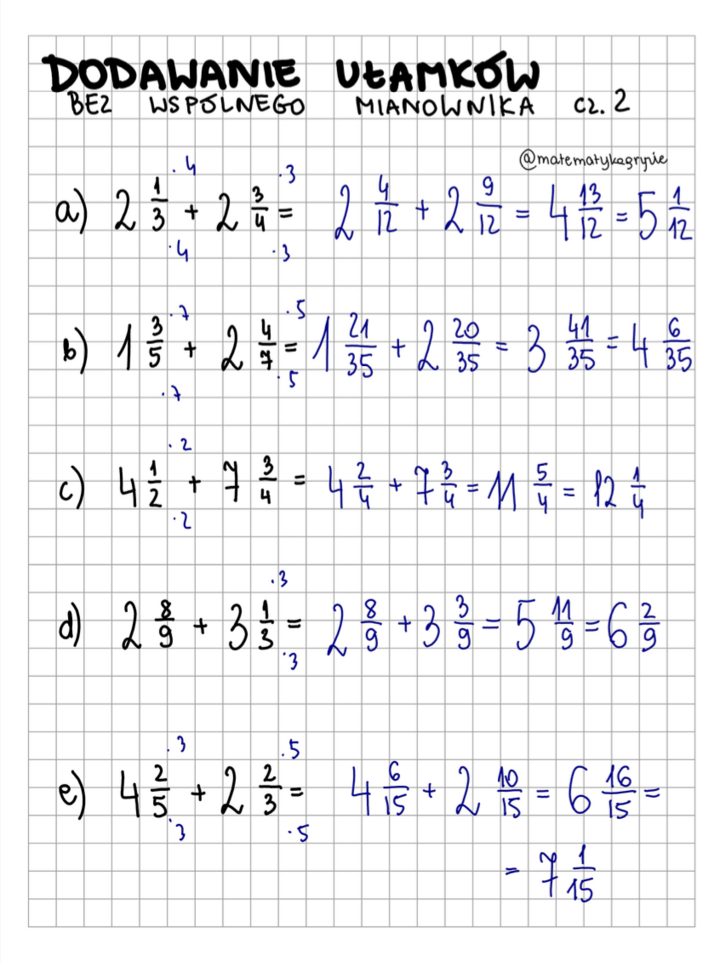 DODAWANIE UŁAMKÓW
BEZ WSPÓLNEGO MIANOWNIKA CZ. 2
@matematykagryzie
a) 2 1/3 + 2 3/4 = 2 4/12 + 2 9/12 = 4 13/12 = 5 1/12
·4 ·3
·4 ·3
b) 1 3/5 + 2 4/7 = 1 21/35 + 2 20/35 = 3 41/35 = 4 6/35
·7 ·5
·7 ·5
c) 4 1/2 + 7 3/4 = 4 2/4 + 7 3/4 = 11 5/4 = 12 1/4
·2
·2
d) 2 8/9 + 3 1/3 = 2 8/9 + 3 3/9 = 5 11/9 = 6 2/9
·3
·3
e) 4 2/5 + 2 2/3 = 4 6/15 + 2 10/15 = 6 16/15 =
·3 ·5
·3 ·5
= 7 1/15